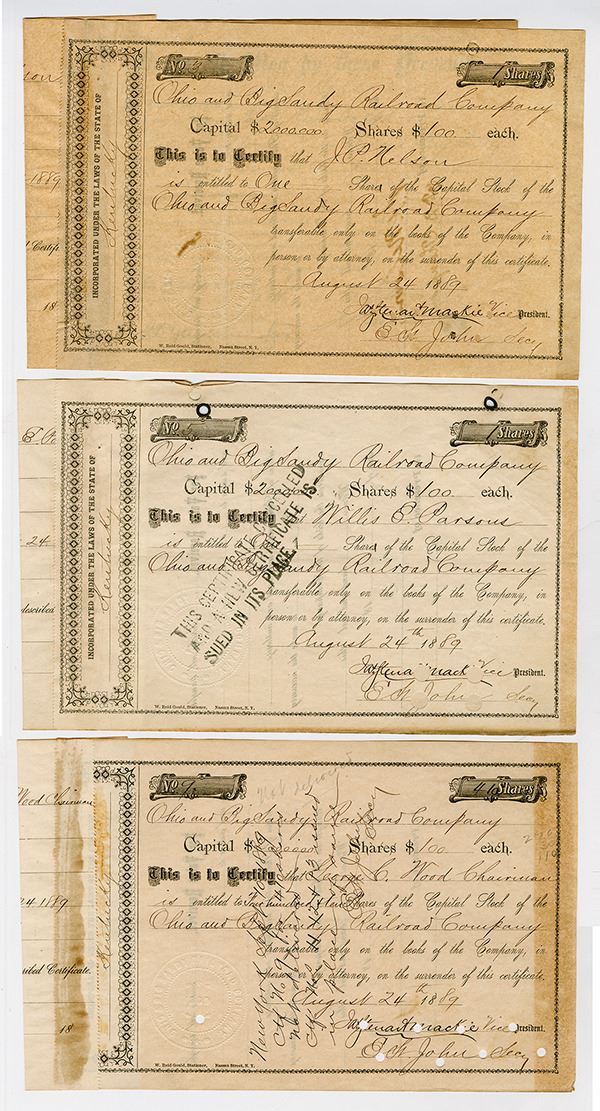 son
1889
Certifi.
18
INCORPORATED UNDER THE LAWS OF THE STATE OF
Kentucky
No 3
1 Shares
Ohio and Big Sandy Railroad Company
Capital $2000.000 Shares $100 each.
This is to Certify that J. P. Nelson
is entitled to One Shares of the Capital Stock of the
Ohio and Big Sandy Railroad Company
transferable only on the books of the Company, in
person or by attorney, on the surrender of this certificate.
August 24 1889
Mackie Vice President.
W. Reid Gould, Stationer, Nassau Street, N. Y.
E. St John Secy
24
described
INCORPORATED UNDER THE LAWS OF THE STATE OF
Kentucky
No 5
1 Shares
Ohio and Big Sandy Railroad Company
Capital $2000.000 Shares $100 each.
This is to Certify that Willis E. Parsons
is entitled to One Shares of the Capital Stock of the
Ohio and Big Sandy Railroad Company
transferable only on the books of the Company, in
person or by attorney, on the surrender of this certificate.
August 24th 1889
Vice President.
W. Reid Gould, Stationer, Nassau Street, N. Y.
E. St John Secy
THIS CERTIFICATE CANCELED
AND A NEW CERTIFICATE IS-
SUED IN ITS PLACE.
Wood Chairman
24 1889
ribed Certificate.
18
Kentucky
No 9
Shares
Ohio and Big Sandy Railroad Company
Capital $ Shares $100 each.
This is to Certify that George C. Wood Chairman
is entitled to hundred Shares of the Capital Stock of the
Ohio and Big Sandy Railroad Company
transferable only on the books of the Company, in
person or by attorney, on the surrender of this certificate.
August 24th 1889
Mackie Vice President.
W. Reid Gould, Stationer, Nassau Street, N. Y.
E. St John Secy
New York Sept 10 1889
issued
in place